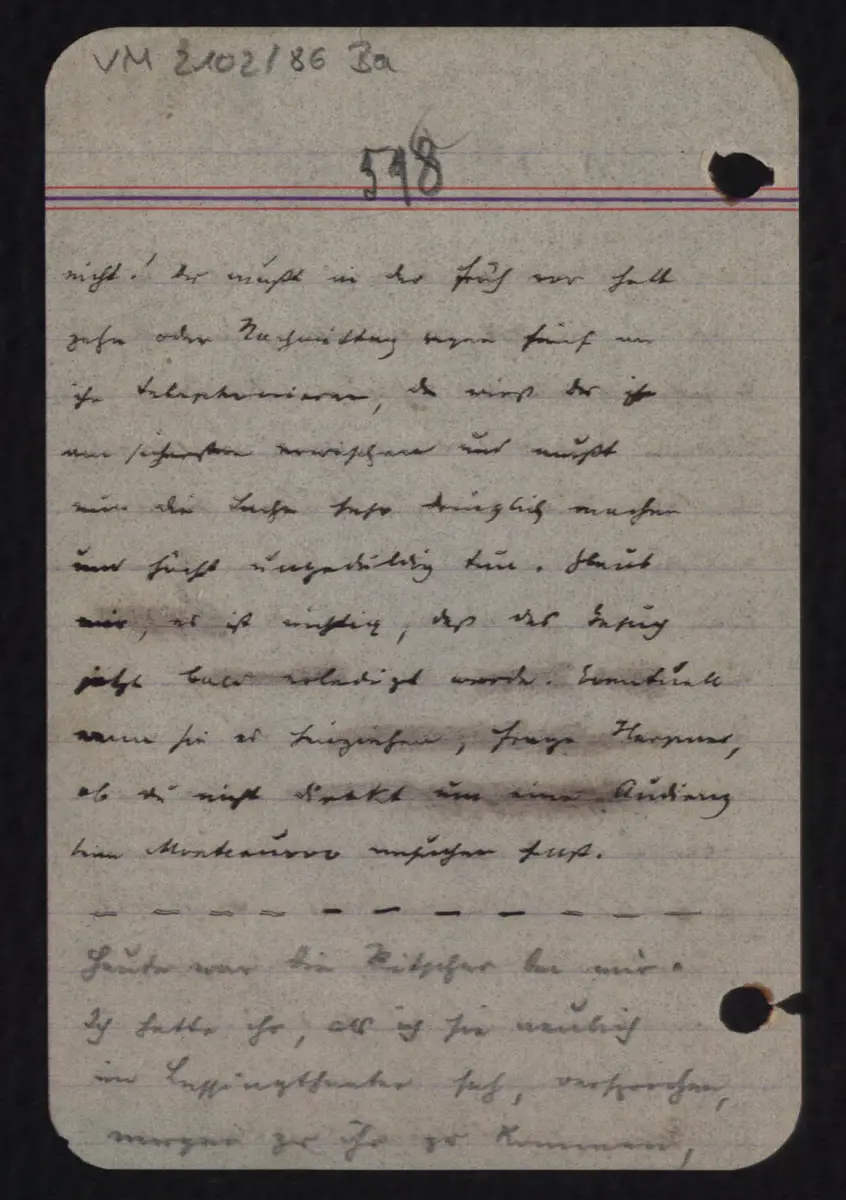 VM 2102/86 Ba
518
nicht! Du mußt in der Früh vor halb
zehn oder Nachmittag gegen fünf an
ihn telephonieren, da wirst du ihn
am sichersten erwischen und mußt
nun die Sache sehr dringlich machen
und höchst ungeduldig tun. Glaub
mir, es ist wichtig, daß das Gesuch
jetzt bald erledigt werde. Eventuell
wenn sie es hinziehen, frage Harpner,
ob du nicht direkt um eine Audienz
beim Montenuovo ansuchen sollst.
Heute war die Kitscher bei mir.
Ich hatte ihr, als ich sie neulich
im Lessingtheater sah, versprochen,
morgen zu ihr zu kommen,